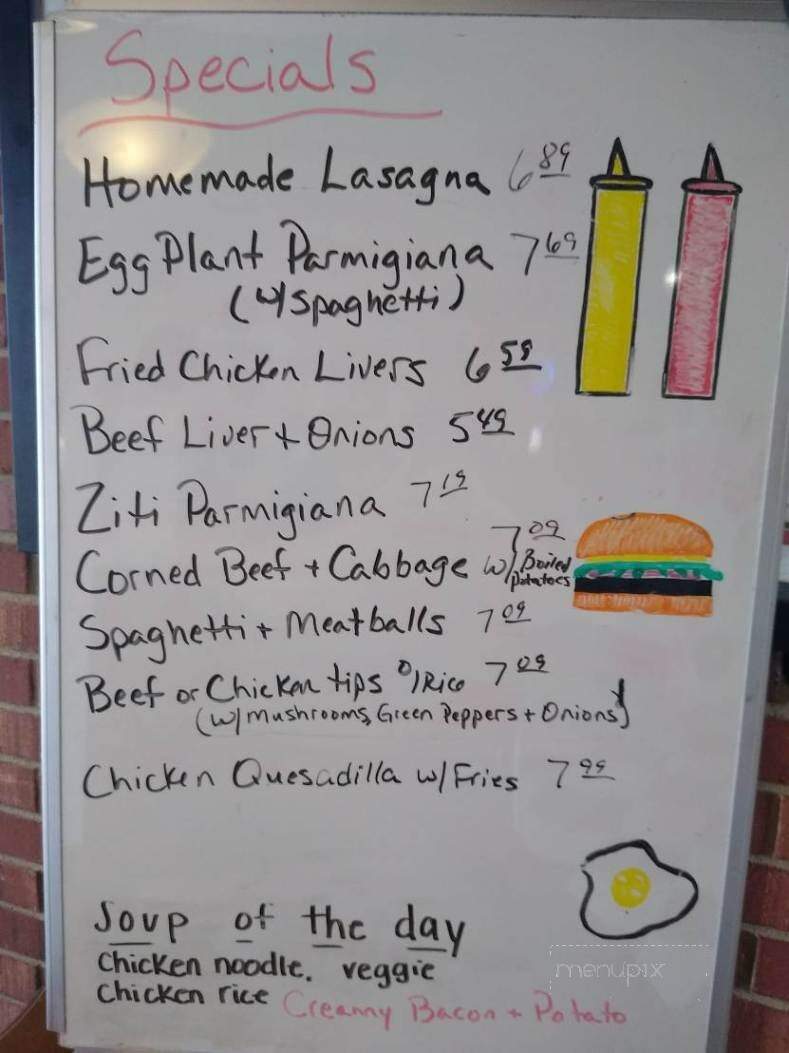 Specials
Homemade Lasagna 6 89
Egg Plant Parmigiana 7 69
(w/ Spaghetti)
Fried Chicken Livers 6 59
Beef Liver + Onions 5 49
Ziti Parmigiana 7 19
Corned Beef + Cabbage w/ Boiled Potatoes 7 09
Spaghetti + Meatballs 7 09
Beef or Chicken tips o/Rice 7 09
(w/ Mushrooms, Green Peppers + Onions)
Chicken Quesadilla w/ Fries 7 99
Soup of the day
Chicken noodle. veggie
Chicken rice Creamy Bacon + Potato
menupix